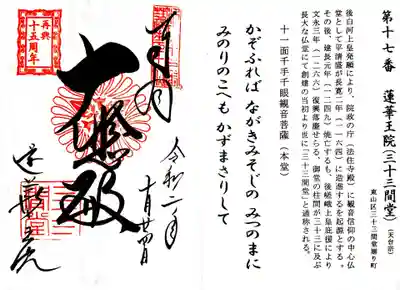 第十七番 蓮華王院(三十三間堂)(天台宗)
東山区三十三間堂廻り町
後白河上皇発願により、院政の庁(法住寺殿)に観音信仰の中心仏
堂として平清盛が長寛二年(一一六四)に造進するを起源とする。
その後、建長元年(一二四九)焼亡するも、後嵯峨上皇庇援により
文永三年(一二六六)復興落慶せらる。御堂の柱間が三十三に及ぶ
長大な仏堂にて創建の当初より世に「三十三間堂」と通称される。
十一面千手千眼観音菩薩(本堂)
かぞふれば ながきみそじの みつのまに
みのりのこへも かずまさりして
令和二年
十月廿四日
奉拝
大悲殿
再興
十五周年
蓮華王院